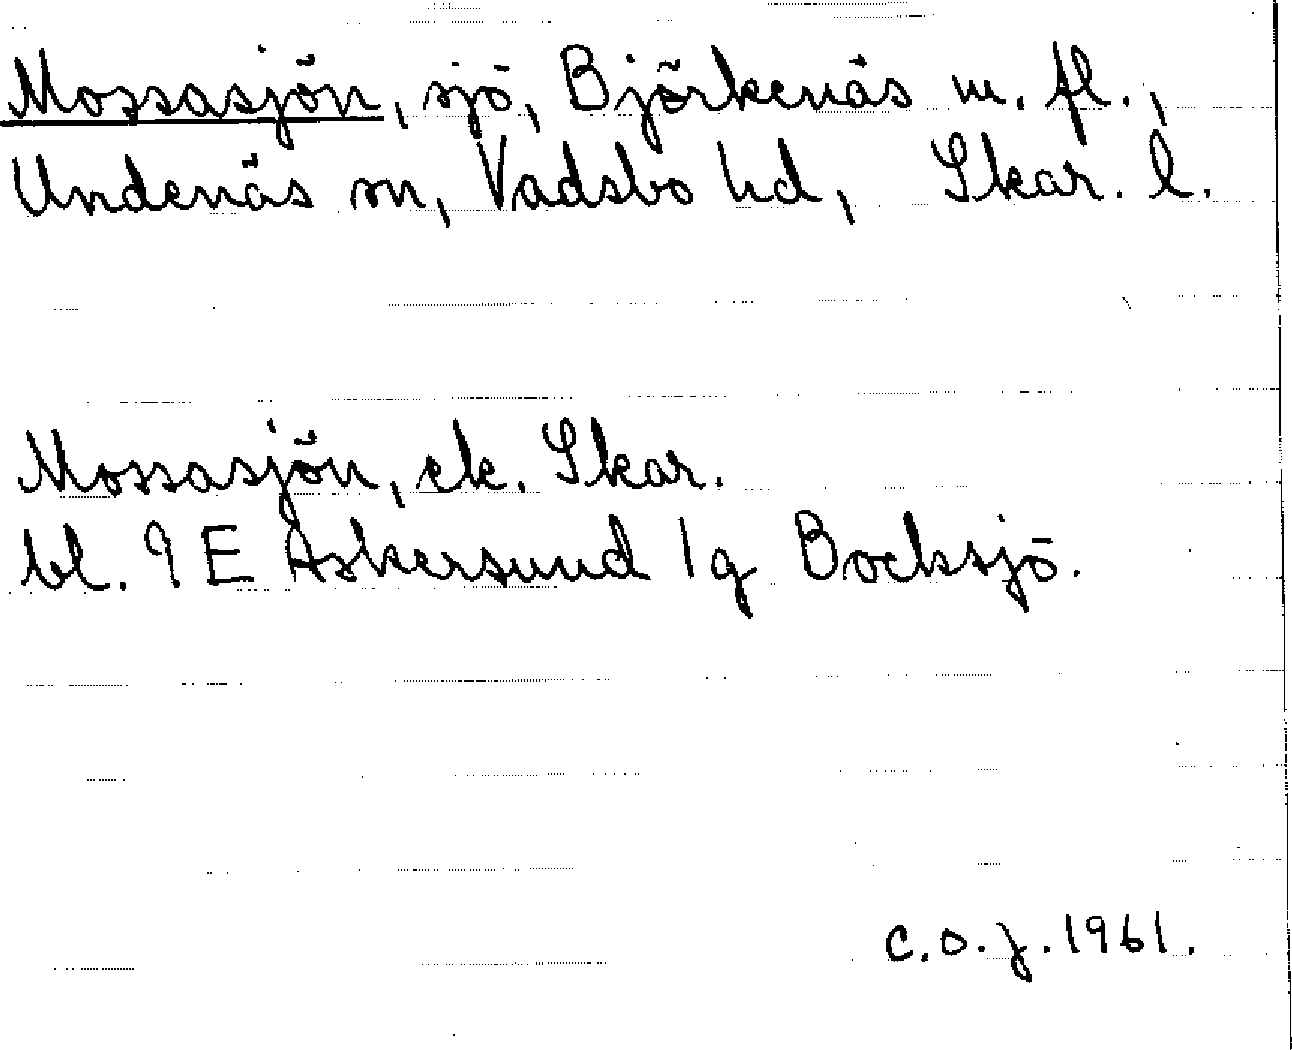 Mossasjön, sjö, Björkenäs m. fl.,
Undenäs sn, Vadsbo hd, Skar. l.
Mossasjön, ek. Skar.
bl. 9 E Askersund 1g Bocksjö.
C.O.J. 1961.